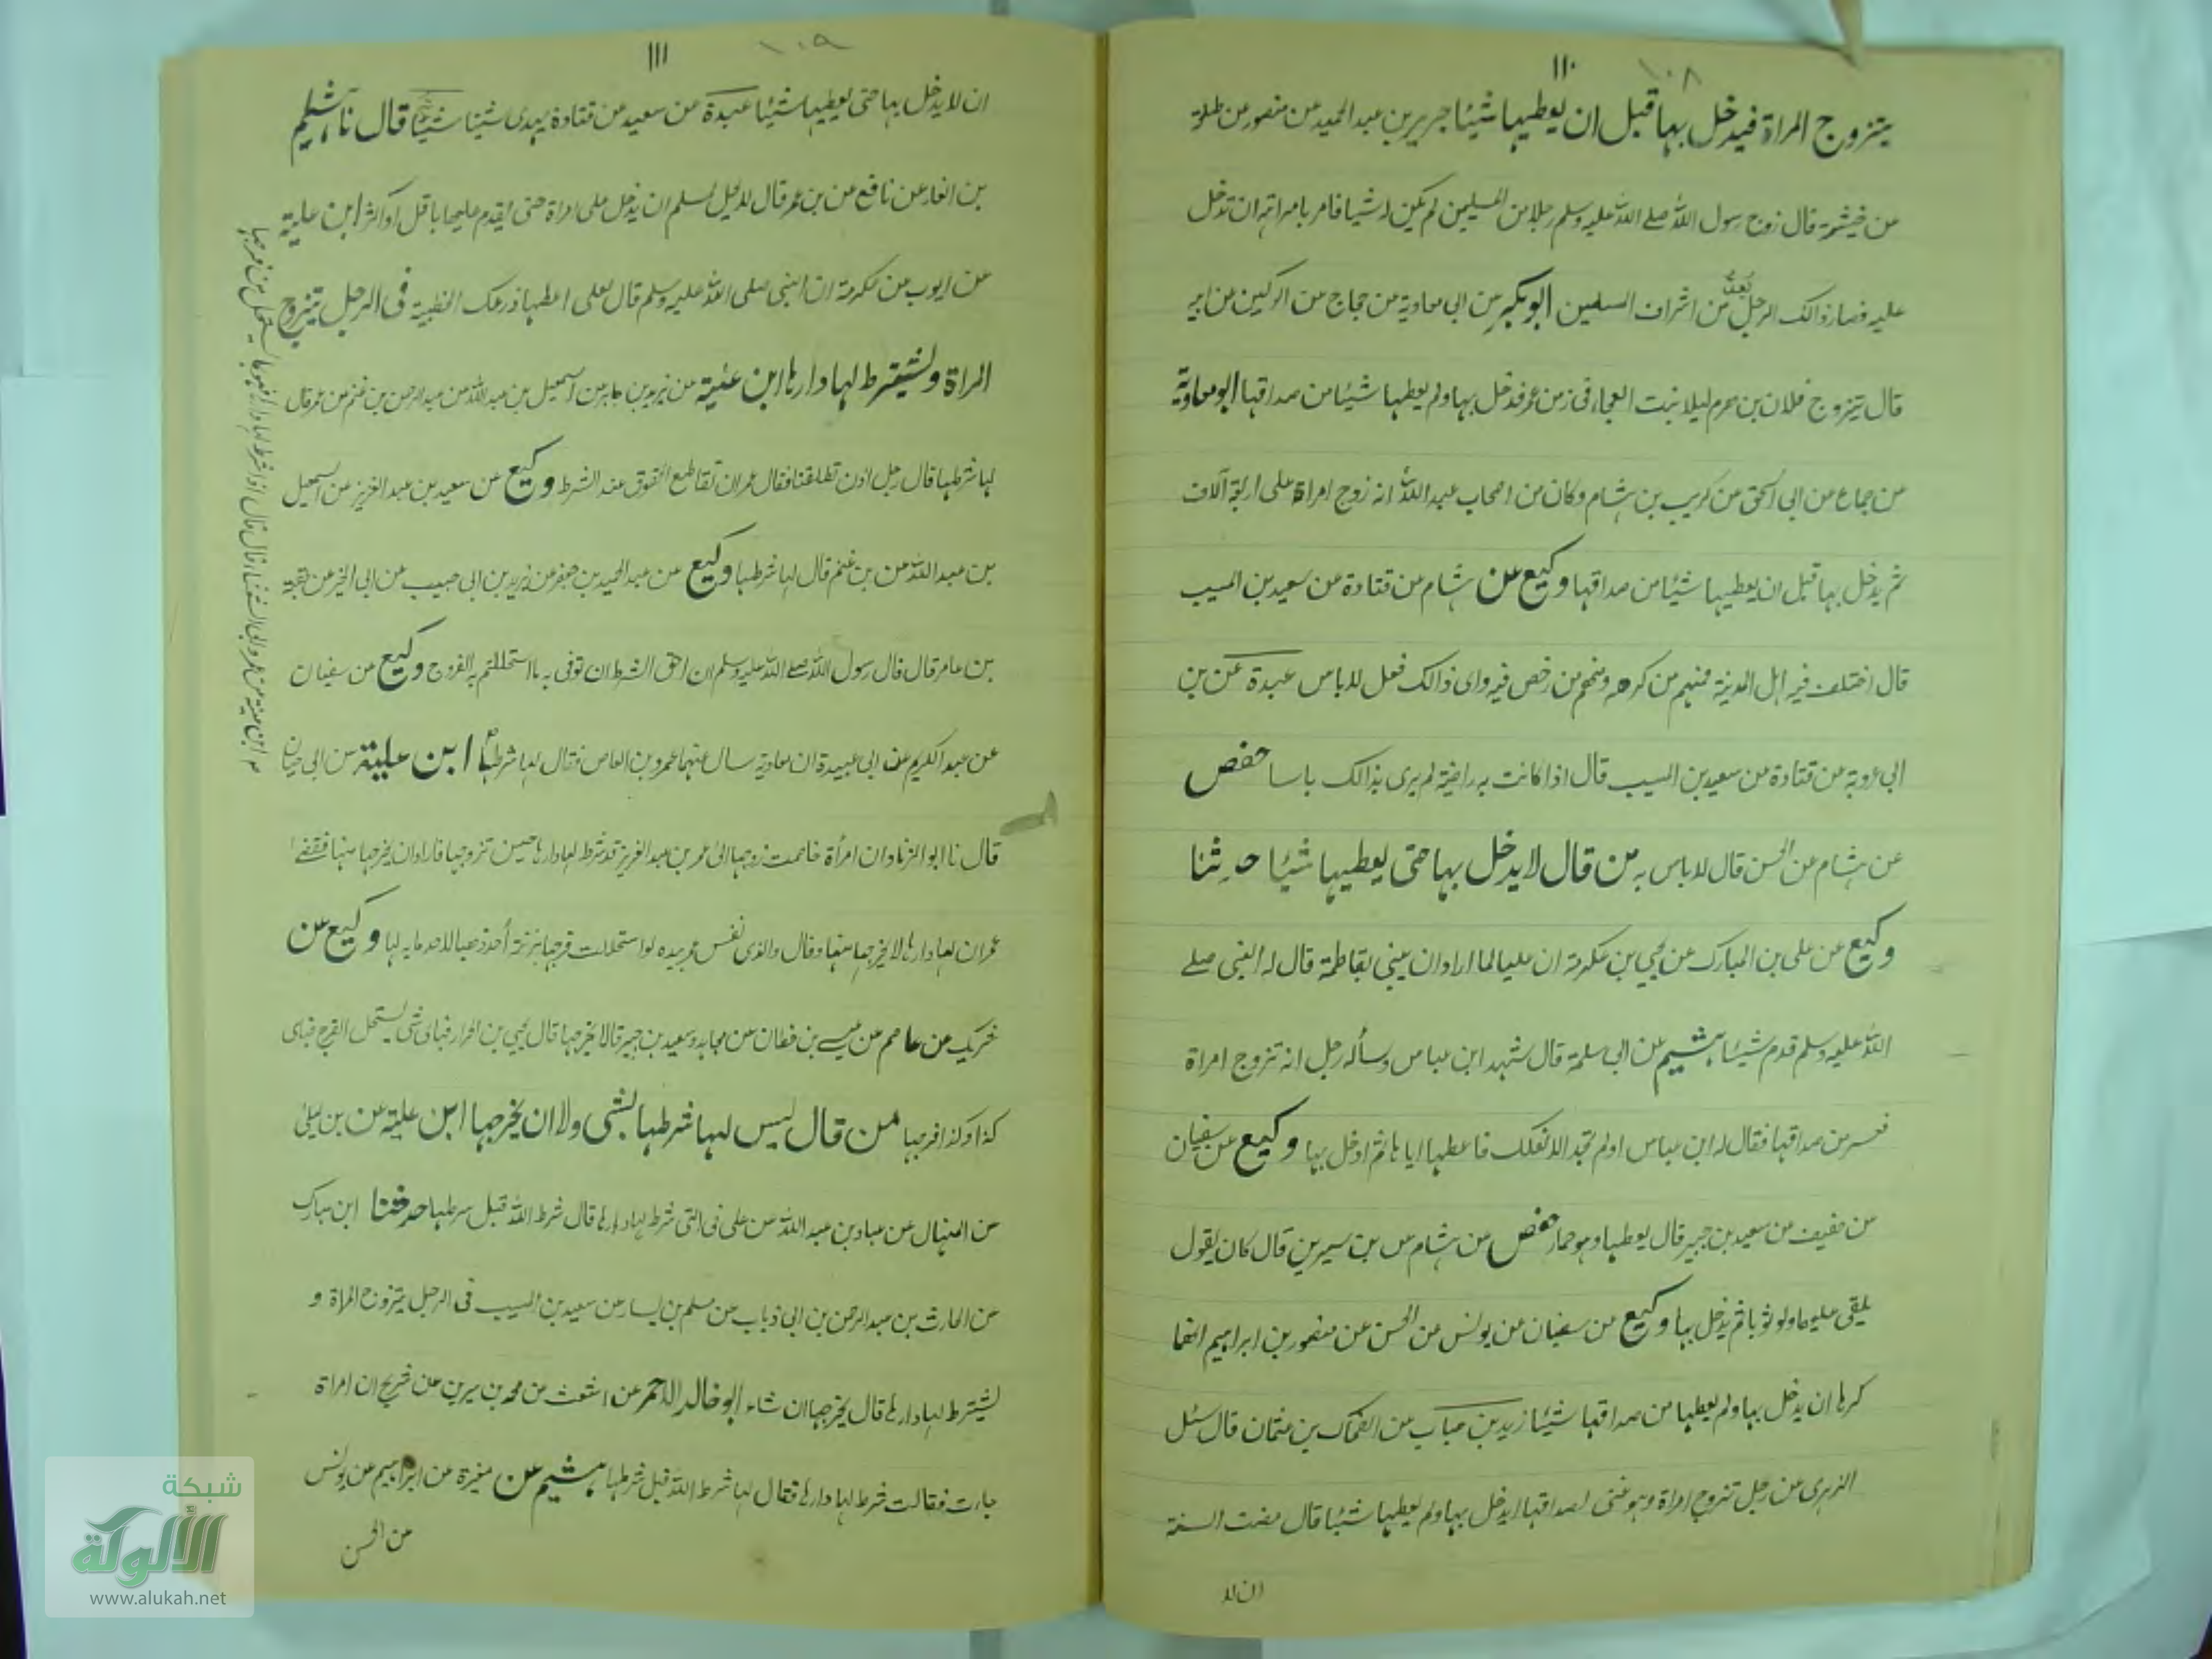 ١١٠
١٠٨
يتزوج المراة فيدخل بها قبل ان يعطيها شيئا جرير بن عبد الحميد عن منصور عن طلحة
عن خيثمة قال زوج رسول الله صلے الله عليه وسلم رجلا من المسلمين لم يكن له شيئا فامر بامراته ان تدخل
عليه فصار ذالك الرجل بعد من اشراف المسلمين ابو بكر عن ابي معاوية عن حجاج عن الركين عن ابيه
قال تزوج فلان بن هرم ليلا بنت العجا فى زمن عمر فدخل بها ولم يعطها شيئا من صداقها ابو معاوية
عن حجاج عن ابي اسحق عن كريب بن هشام وكان من اصحاب عبد الله انه زوج امراة على اربعة آلاف
ثم يدخل بها قبل ان يعطيها شيئا من صداقها وكيع عن هشام عن قتادة عن سعيد بن المسيب
قال اختلف فيه اهل المدينة فمنهم من كرهه ومنهم من رخص فيه واى ذالك فعل لا باس عبدة عن بن
ابي عروبة عن قتادة عن سعيد بن المسيب قال اذا كانت به راضية لم يرى بذالك باسا حفص
عن هشام عن الحسن قال لا باس به من قال لا يدخل بها حتى يعطيها شيئا حدثنا
وكيع عن على بن المبارك عن يحيي بن عكرمة ان عليا لما اراد ان يبني بفاطمة قال له النبي صلے
الله عليه وسلم قدم شيئا هشيم عن ابي سلمة قال شهد ابن عباس وسأله رجل انه تزوج امراة
فعسر من صداقها فقال له ابن عباس او لم تجد الا نعلك فاعطها اياها ثم ادخل بها وكيع عن سفيان
عن خفيف عن سعيد بن جبير قال يعطها وهو خمار حفص عن هشام عن بن سيرين قال كان يقول
يلقى عليها ولو ثوبا ثم يدخل بها وكيع عن سفيان عن يونس عن الحسن عن منصور بن ابراهيم انهما
كرها ان يدخل بها ولم يعطها من صداقها شيئا زيد بن حباب عن الضحاك بن عثمان قال سئل
الزهري عن رجل تزوج امراة وهو غنى لصداقها ايدخل بها ولم يعطها شيئا قال مضت السنة
ان لا
١١١
١٠٩
ان لا يدخل بها حتى يعطيها شيئا عبدة عن سعيد عن قتادة يهدى شيئا شيئا قال نا هشيم
بن الغار عن نافع عن بن عمر قال لا يحل لمسلم ان يدخل على امراة حتى يقدم عليها باقل او اكثر ابن علية
عن ايوب عن عكرمة ان النبي صلى الله عليه وسلم قال لعلى اعطها درعك الخطبية فى الرجل يتزوج
المراة ويشترط لها دارها ابن عيينة عن يزيد بن جابر عن اسمعيل بن عبد الله عن عبد الرحمن بن غنم عن عمر قال
لها شرطها قال رجل اذن تطلقنا فقال عمر ان تقاطع الحقوق عند الشرط وكيع عن سعيد بن عبد العزيز عن اسمعيل
بن عبد الله عن بن غنم قال لها شرطها وكيع عن عبد الحميد بن جعفر عن يزيد بن ابي حبيب عن ابي الخير عن عقبة
بن عامر قال قال رسول الله صلے الله عليه وسلم ان احق الشرط ان توفى به ما استحللتم به الفروج وكيع عن سفيان
عن عبد الكريم عن ابي عبيدة ان معاوية سال عنها عمرو بن العاص فقال لها شرطها ابن علية عن ابي حيان
قال نا ابو الزناد ان امرأة خاصمت زوجها الى عمر بن عبد العزيز قد شرط لها دارها حين تزوجها فاراد ان يخرجها منها فقضے
عمر ان لها دارها لا يخرجها منها وقال والذى نفس عمر بيده لو استحللت فرجها بزنة أحد ذهبا لاخذ ما به لها وكيع عن
شريك عن عاصم عن عيسے بن حطان عن مجاهد وسعيد بن جبير قالا يخرجها قال يحيي بن الجزار فباى شى يستحل الفرج فباى
كذا وكذا فرجها من قال ليس لها شرطها بشى ولا ان يخرجها ابن علية عن بن ليلى
عن المنهال عن عباد بن عبد الله عن على فى التى شرط لها دارها قال شرط الله قبل شرطها حدثنا ابن مبارك
عن الحارث بن عبد الرحمن بن ابي ذباب عن مسلم بن يسار عن سعيد بن المسيب فى الرجل يتزوج المراة و
يشترط لها دارها قال يخرجها ان شاء ابو خالد الاحمر عن اشعث عن محمد بن سيرين عن شريح ان امراة
جاءت فقالت شرط لها دارها فقال لها شرط الله قبل شرطها هشيم عن مغيرة عن ابراهيم عن يونس
عن الحسن
شبكة
الألوكة
www.alukah.net